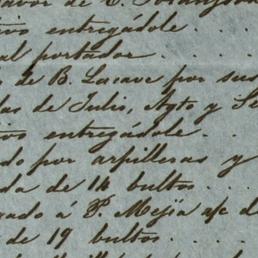 favor de
tivo entregádole . . .
al portador . . .
de B. Lacave por sus
das de Julio, Agto y Se
tivo entregádole . . .
do por arpilleras y
da de 14 bultos . . .
gado á P. Mejia a/c d
de 19 bultos . . .